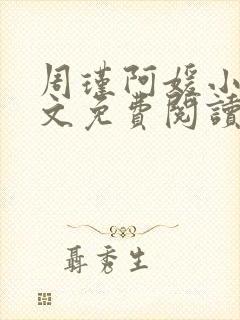 周瑾阿媛小
文免費閱讀
聶秀生